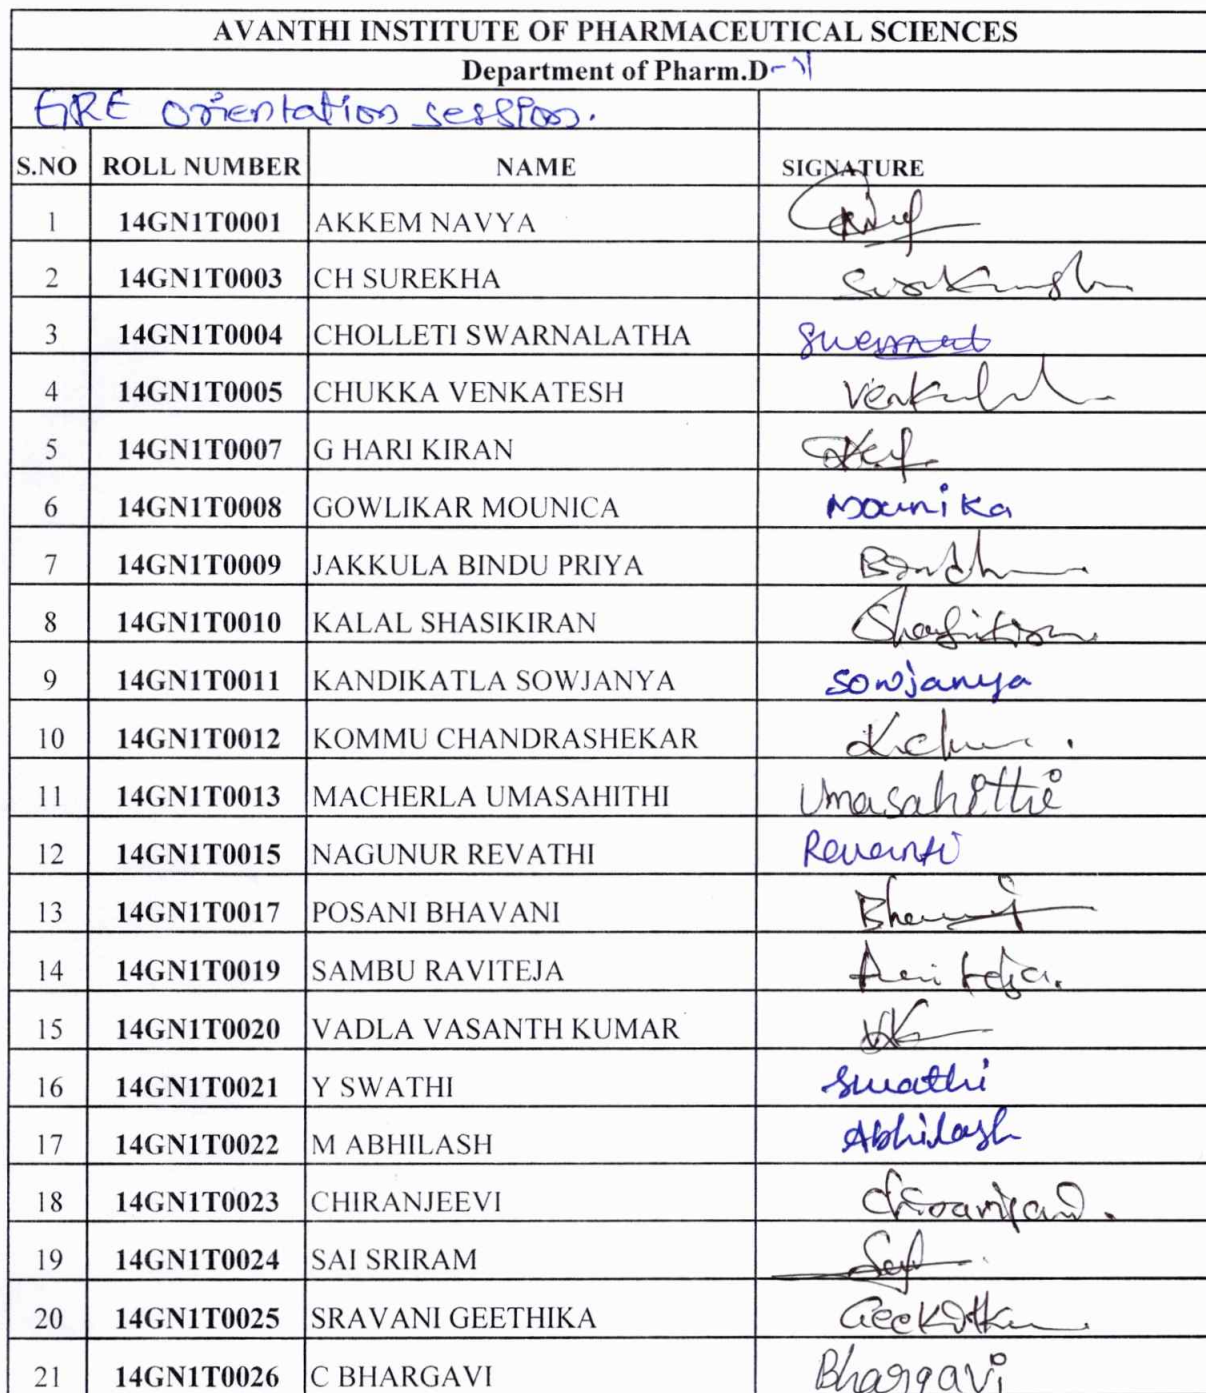 AVANTHI INSTITUTE OF PHARMACEUTICAL SCIENCES
Department of Pharm.D-II
GRE orientation session.
S.NO ROLL NUMBER NAME SIGNATURE
1 14GN1T0001 AKKEM NAVYA
2 14GN1T0003 CH SUREKHA
3 14GN1T0004 CHOLLETI SWARNALATHA
4 14GN1T0005 CHUKKA VENKATESH
5 14GN1T0007 G HARI KIRAN
6 14GN1T0008 GOWLIKAR MOUNICA Mounika
7 14GN1T0009 JAKKULA BINDU PRIYA
8 14GN1T0010 KALAL SHASIKIRAN
9 14GN1T0011 KANDIKATLA SOWJANYA Sowjanya
10 14GN1T0012 KOMMU CHANDRASHEKAR
11 14GN1T0013 MACHERLA UMASAHITHI Umasahithi
12 14GN1T0015 NAGUNUR REVATHI
13 14GN1T0017 POSANI BHAVANI
14 14GN1T0019 SAMBU RAVITEJA
15 14GN1T0020 VADLA VASANTH KUMAR
16 14GN1T0021 Y SWATHI Swathi
17 14GN1T0022 M ABHILASH Abhilash
18 14GN1T0023 CHIRANJEEVI
19 14GN1T0024 SAI SRIRAM
20 14GN1T0025 SRAVANI GEETHIKA
21 14GN1T0026 C BHARGAVI Bhargavi